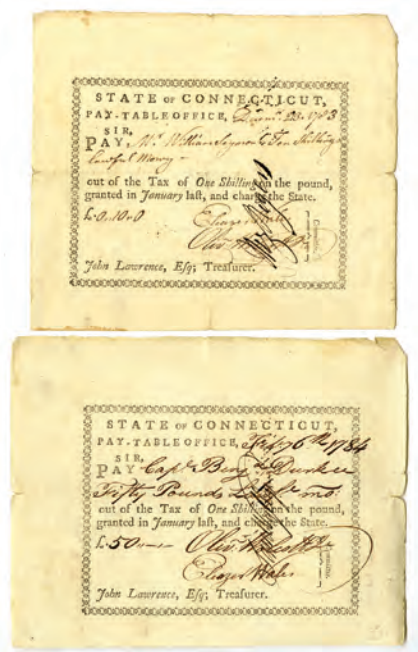 STATE OF CONNECTICUT,
PAY-TABLE OFFICE, 1783
SIR,
PAY Mr William Ten Shillings
lawful Money
out of the Tax of One Shilling on the pound,
granted in January last, and charge the State.
£ 0..10..0 Eleazer Wales
John Lawrence, Esq; Treasurer.
STATE OF CONNECTICUT,
PAY-TABLE OFFICE, Feby 6th 1784
SIR,
PAY Capt
Fifty Pounds
out of the Tax of One Shilling on the pound,
granted in January last, and charge the State.
£ 50 Olivr Wolcott Jr
Eleazer Wales
John Lawrence, Esq; Treasurer.